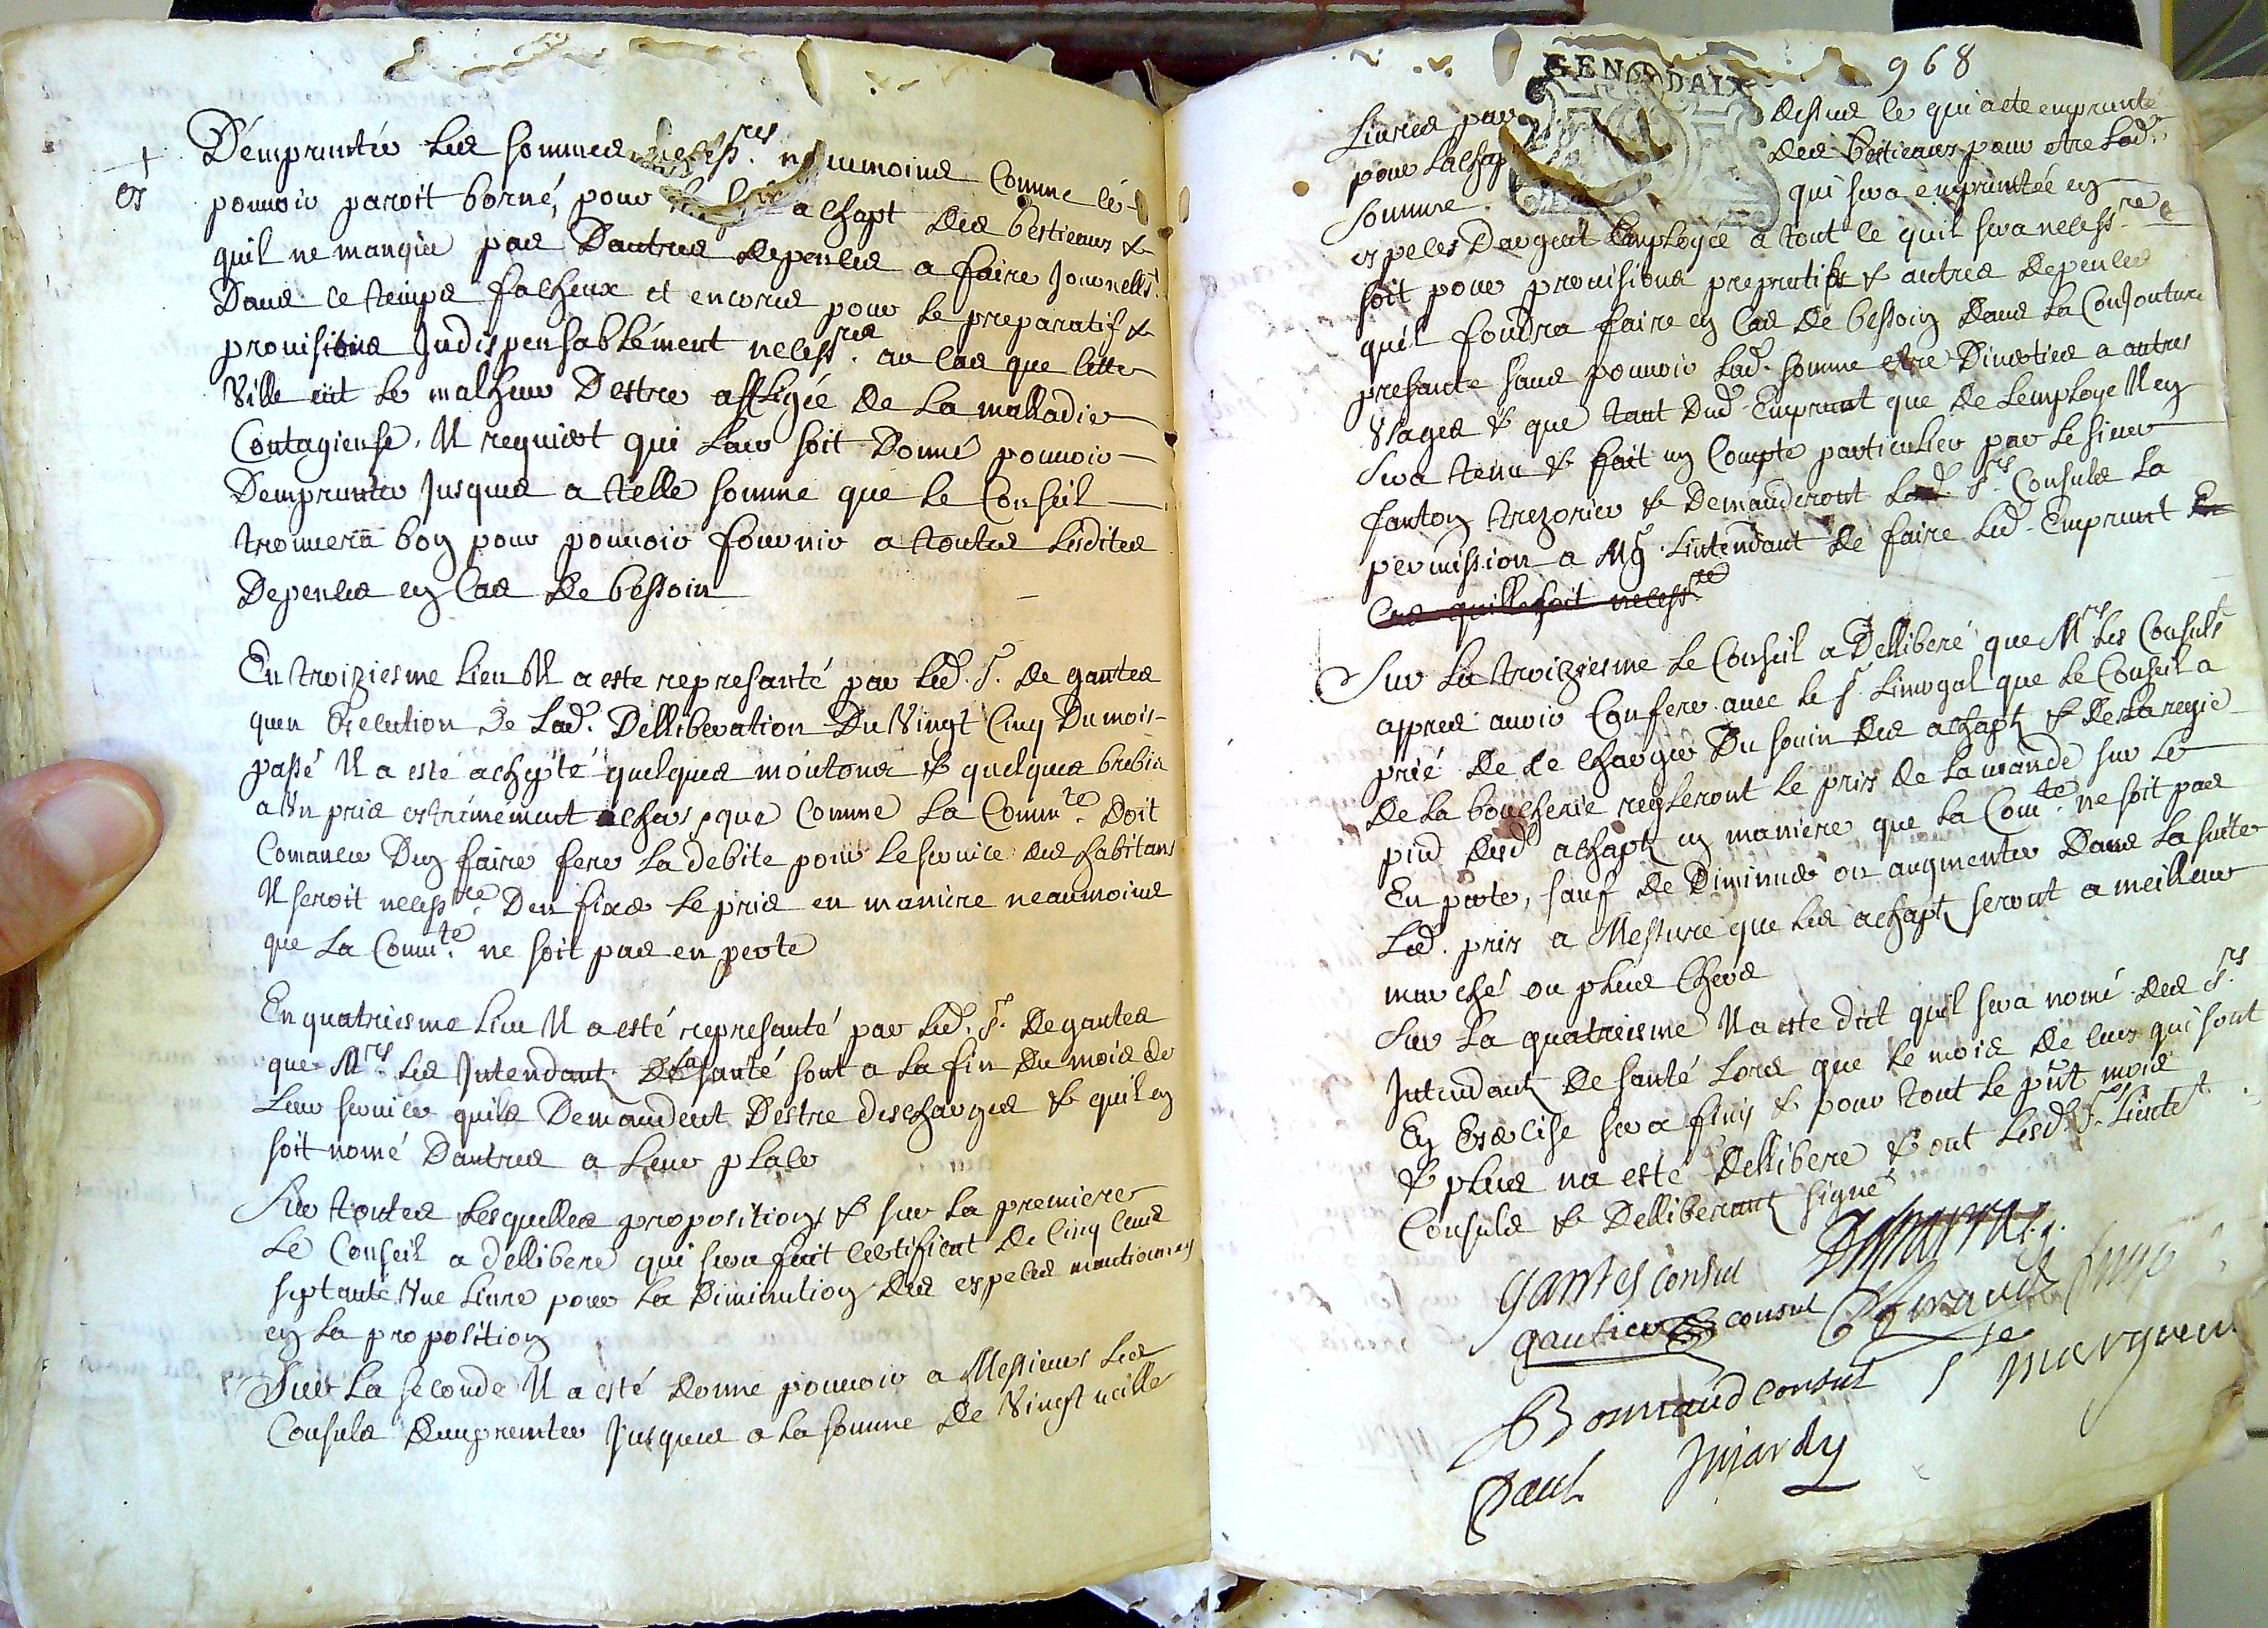 Démprunter les sommes necess.res neaumoins comme le
+
es
pouvoir paroit borné, pour achapt des bestieaux &
quil ne manque pas Dautres depences a faire Journellt.
Dans ce temps facheux et encores pour le preparatif &
provisions Jndispensablément necess.res au cas que cette
Ville eut le malheur Destre affligée de la malladie
Contagieuse, Il requiert qui leur soit Donné pouvoir
Demprunter Jusques a telle somme que le Conseil
trouvera bon pour pouvoir fournir a toutes lesdites
Depences en Cas de bessoin
En troiziesme lieu Il a este represanté par led. Sr. de gantes
quen Execution de Lad. Délliberation Du Vingt Cinq Du mois
passé Il a esté achepté quelques moutons & quelques brebis
a Un pris estrémément chers, que Comme La Commté. Doit
Comancer Den faire fere la debite pour le service des habitans
Il seroit necess.re Den fixer le pris en maniere neaumoins
que La Commté. ne soit pas en perte
En quatriesme lieu Il a esté represanté par led. Sr. De gantes
que Mrs. les Jntendants De la santé sont a la fin Du mois de
Leur service quils Demandent Destre deschargés & quil en
soit nomé Dautres a leur place
Sur toutes lesquelles propositions & sur la premiere
Le Conseil a délliberé qui sera fait Certificat De Cinq Cens
septante Une livre pour la Diminution des especes mantionnes
en la proposition
Sur La seconde Il a esté donne pouvoir a Messieurs les
Consuls Dempreunter Jusques a la somme de Vingt mille
968
GEN DAIX
Livres par dessus le qui a ete emprunté
pour Lachap des bestieaux pour etre Lad.
Somme qui sera empruntée en
especes Dargent Employée a tout ce quil sera necess.re
soit pour provisions prepratifs & autres depences
quil foudra faire en Cas De bessoin Dans la Conjonture
presante sans pouvoir Lad. somme etre Diverties a autres
Usages & que tant Dud. Emprunt que de Lemploye Il en
sera tenu & fait un Compte particulier par le sieur
fanton trezorier & Demanderont Srs. Consuls La
permission a Mg. Lintendant de faire Led. Emprunt En
Cas quille soit necess.re
Sur la troiziesme Le Conseil a Délliberé que Mrs. Les Consuls
appres avoir Conferer avec le Sr. que le Conseil a
prié de se charger Du souin des achapts & De la regie
De la boucherie regleront le pris de La viande sur le
pied desd. achapts en maniere que la Comté. ne soit pas
En perte, sauf de Diminuer ou augmenter Dans la suitte
Led. pris a Messure que les achapts seront a meilleur
marché ou plus Chers
Sur la quatriesme Il a este dict quil sera nomé des Srs.
Jntendants De santé Lors que le mois de ceux qui sont
En Exercise sera finis & pour tout le pñt mois
& plus na esté délliberé & ont lesd. Srs. Lieutet.
Consuls & Delliberants signé
gantes consul
gautier consul
Bonnaud consul
Paul